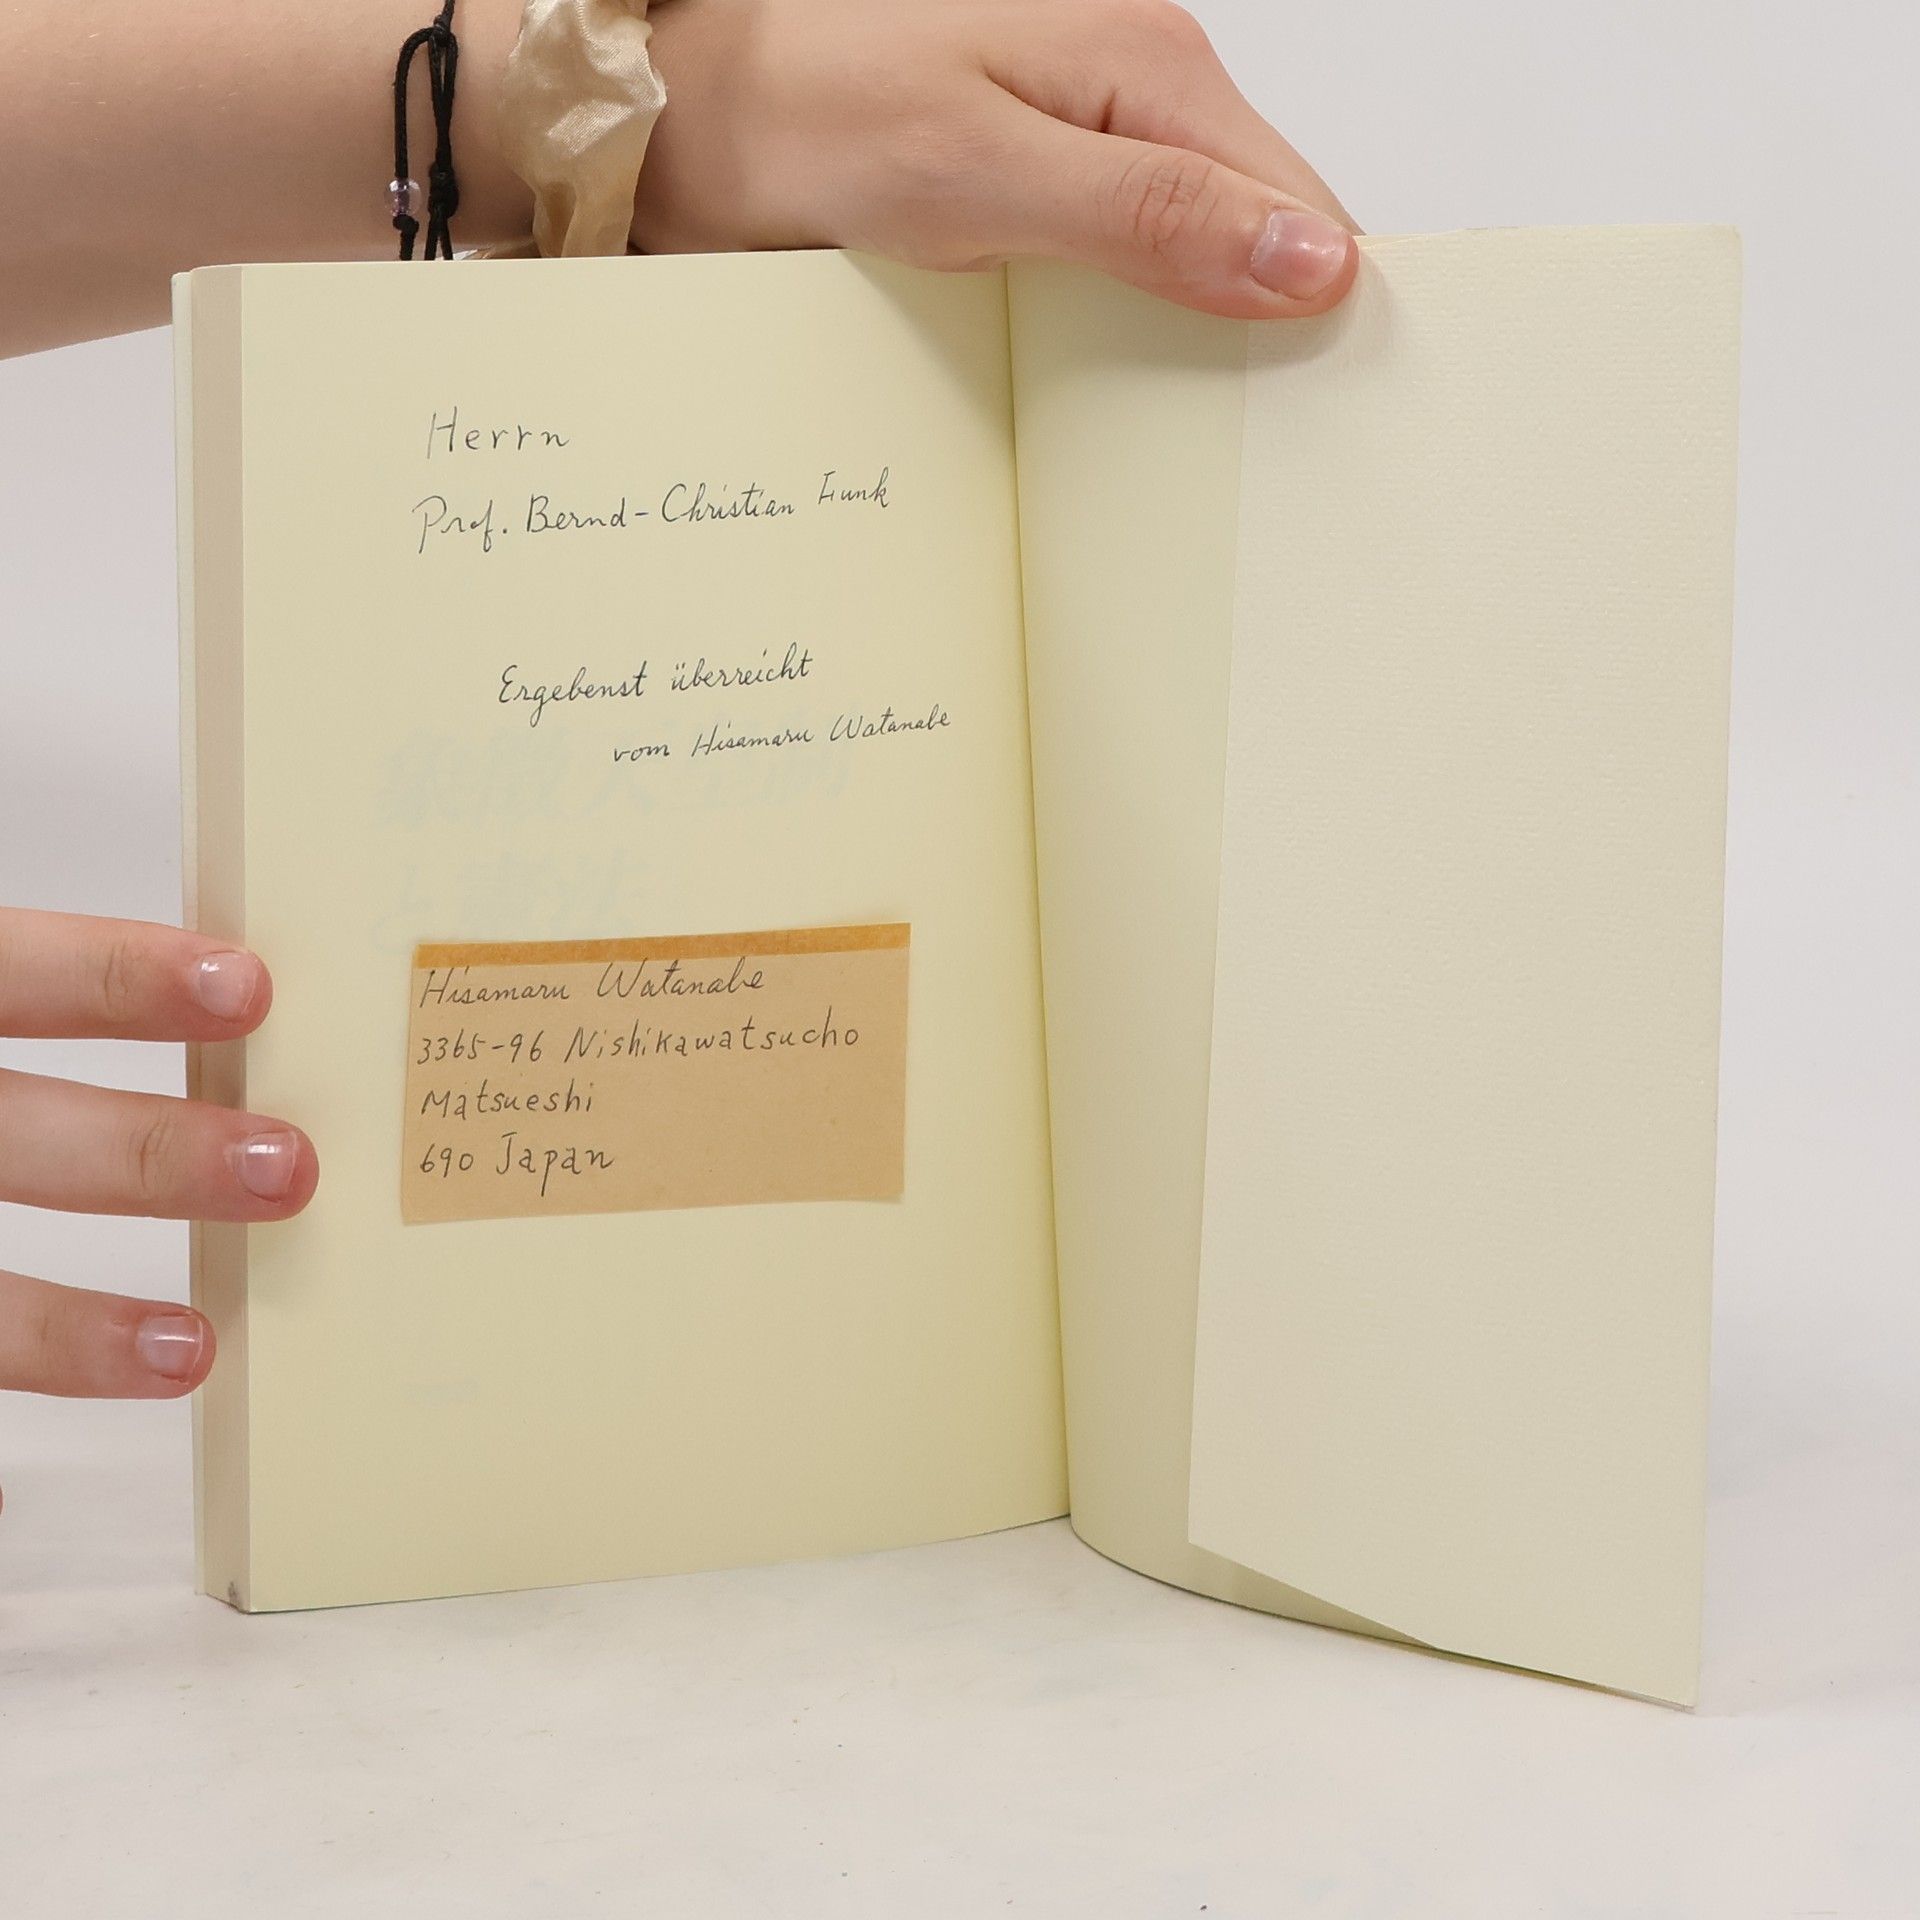 Herrn
Prof. Bernd-Christian Funk
Ergebenst überreicht
vom Hisamaru Watanabe
Hisamaru Watanabe
3365-96 Nishikawatsucho
Matsueshi
690 Japan